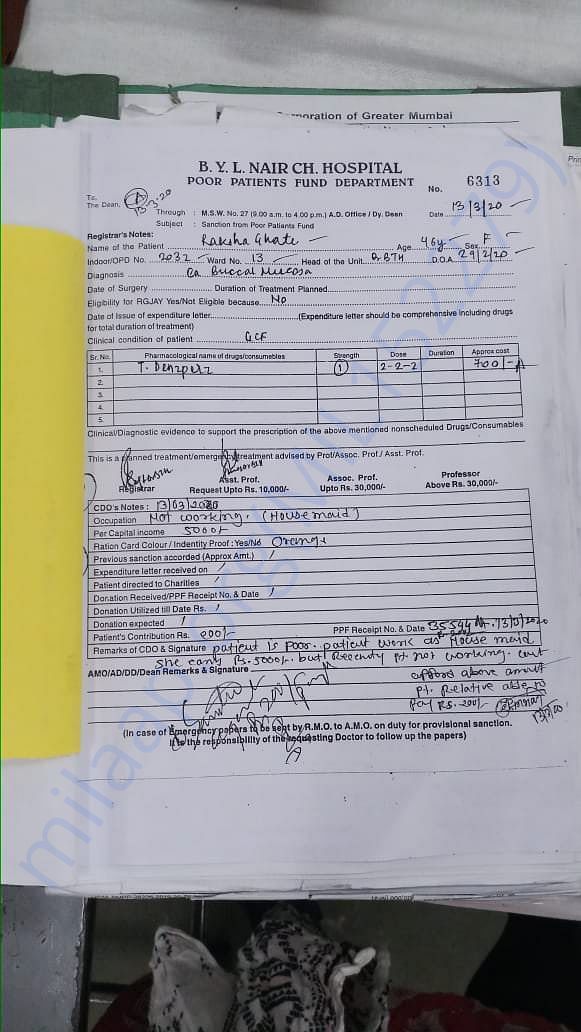 rporation of Greater Mumbai
Prin
B. Y. L. NAIR CH. HOSPITAL
POOR PATIENTS FUND DEPARTMENT
No. 6313
To,
The Dean,
13-3-20
Date 13/3/20
Through : M.S.W. No. 27 (9.00 a.m. to 4.00 p.m.) A.D. Office / Dy. Dean
Subject : Sanction from Poor Patients Fund
Registrar's Notes:
Name of the Patient Raksha Ghate Age 46y Sex F
Indoor/OPD No. 2032 Ward No. 13 Head of the Unit D.O.A 29/2/20
Diagnosis Ca Buccal Mucosa
Date of Surgery Duration of Treatment Planned
Eligibility for RGJAY Yes/Not Eligible because No
Date of Issue of expenditure letter (Expenditure letter should be comprehensive including drugs
for total duration of treatment)
Clinical condition of patient GCF
Sr. No. Pharmacological name of drugs/consumables Strength Dose Duration Approx cost
1. T. 1 2-2-2 700/-
2.
3.
4.
5.
Clinical/Diagnostic evidence to support the prescription of the above mentioned nonscheduled Drugs/Consumables
This is a planned treatment/emergency treatment advised by Prof/Assoc. Prof / Asst. Prof.
Registrar Asst. Prof. Assoc. Prof. Professor
Request Upto Rs. 10,000/- Upto Rs. 30,000/- Above Rs. 30,000/-
CDO's Notes : 13/03/2020
Occupation Not working. (House maid)
Per Capital income 5000/-
Ration Card Colour / Indentity Proof : Yes/No Orange
Previous sanction accorded (Approx Amt.) /
Expenditure letter received on /
Patient directed to Charities /
Donation Received/PPF Receipt No. & Date /
Donation Utilized till Date Rs. /
Donation expected /
Patient's Contribution Rs. 200/- PPF Receipt No. & Date 35544 13/3/2020
Remarks of CDO & Signature patient is Poor. patient work as House maid
she earn Rs. 5000/- but Recently pt. not working. cant
AMO/AD/DD/Dean Remarks & Signature afford above amut
pt. Relative able to
Pay Rs. 200/-
(In case of Emergency papers to be sent by R.M.O to A.M.O. on duty for provisional sanction.
It is the responsibility of the requesting Doctor to follow up the papers)
milaap.org(MIL152279)